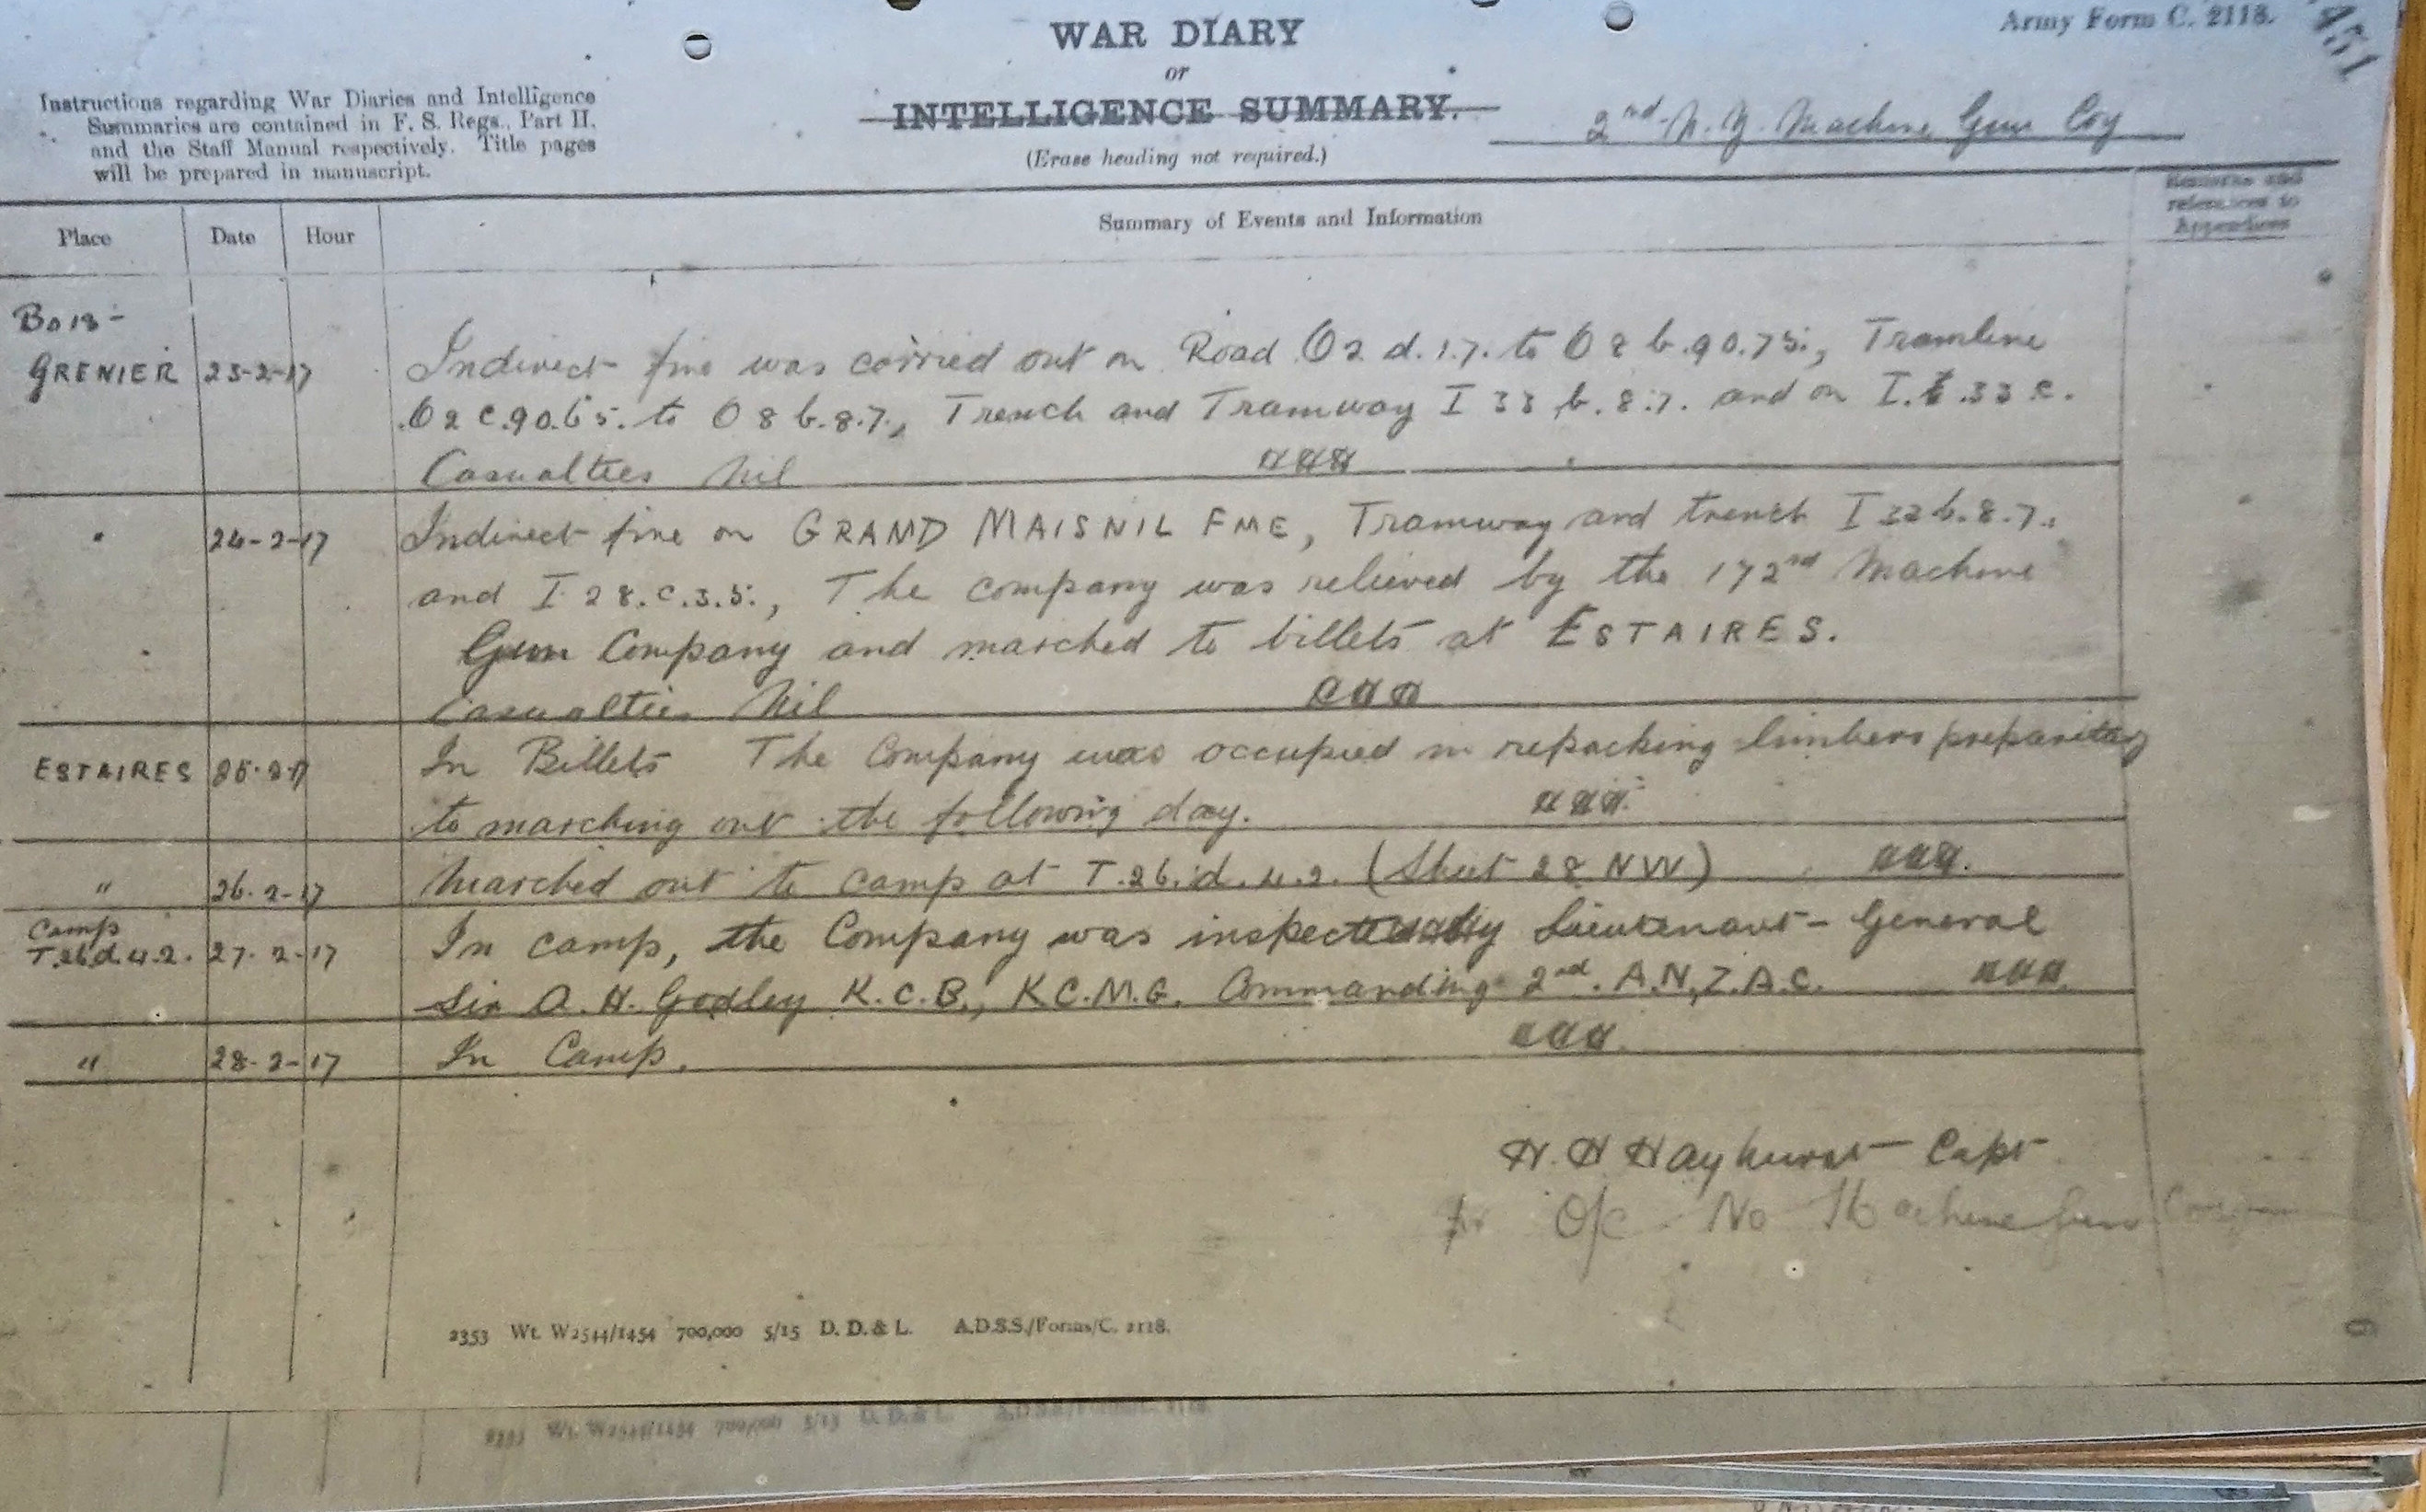 Army Form C. 2118.
451
WAR DIARY
or
INTELLIGENCE SUMMARY.
(Erase heading not required.)
Instructions regarding War Diaries and Intelligence
Summaries are contained in F. S. Regs., Part II.
and the Staff Manual respectively. Title pages
will be prepared in manuscript.
2nd N.Z. Machine Gun Coy
Place Date Hour Summary of Events and Information Remarks and
references to
Appendices
Bois-
GRENIER 23-2-17 Indirect fire was carried out on Road O2 d.1.7. to O8 b.90.75., Tramline
O2 c.90.65. to O8 b.8.7., Trench and Tramway I 33 b.8.7. and on I.33 c.
Casualties Nil HHH
" 24-2-17 Indirect fire on GRAND MAISNIL FME, Tramway and trench I 32 b.8.7.
and I 28.c.3.5., The company was relieved by the 172nd Machine
Gun Company and marched to billets at ESTAIRES.
Casualties Nil HHH
ESTAIRES 25-2-17 In Billets The Company was occupied in repacking limbers preparatory
to marching out the following day. HHH
" 26-2-17 Marched out to camp at T.26.d.4.2. (Sheet 28 NW) HHH.
Camp
T.26.d.4.2. 27-2-17 In camp, the Company was inspected by Lieutenant-General
Sir A. H. Godley K.C.B., K.C.M.G. Commanding 2nd. A.N.Z.A.C. HHH.
" 28-2-17 In Camp. HHH.
H. H Hayhurst Capt
for O/c No Machine Gun
2353 Wt. W2544/1454 700,000 5/15 D. D. & L. A.D.S.S./Forms/C. 2118.
2353 Wt. W2544/1454 700,000 5/15 D. D. & L. A.D.S.S./Forms/C. 2118.